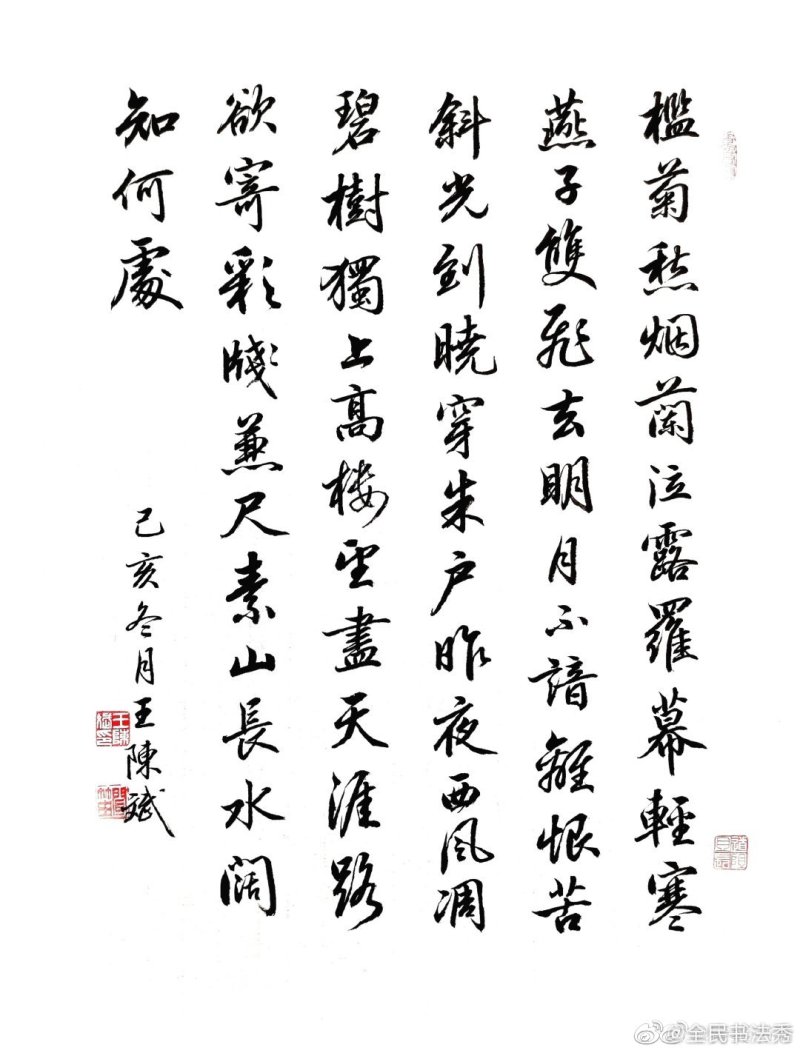 槛菊愁烟蘭泣露羅幕輕寒
燕子雙飛去明月不諳離恨苦
斜光到曉穿朱户昨夜西风凋
碧樹獨上高楼望盡天涯路
欲寄彩牋兼尺素山長水阔
知何處
己亥冬月王陳斌
@全民书法秀